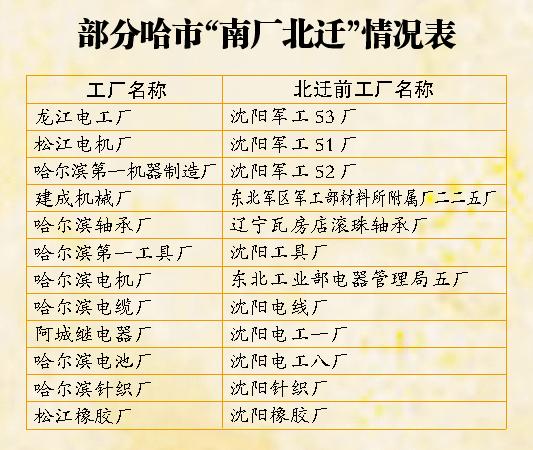 部分哈市“南厂北迁”情况表
工厂名称 北迁前工厂名称
龙江电工厂 沈阳军工 53 厂
松江电机厂 沈阳军工 51 厂
哈尔滨第一机器制造厂 沈阳军工 52 厂
建成机械厂 东北军区军工部材料所附属厂二二五厂
哈尔滨轴承厂 辽宁瓦房店滚珠轴承厂
哈尔滨第一工具厂 沈阳工具厂
哈尔滨电机厂 东北工业部电器管理局五厂
哈尔滨电缆厂 沈阳电线厂
阿城继电器厂 沈阳电工一厂
哈尔滨电池厂 沈阳电工八厂
哈尔滨针织厂 沈阳针织厂
松江橡胶厂 沈阳橡胶厂